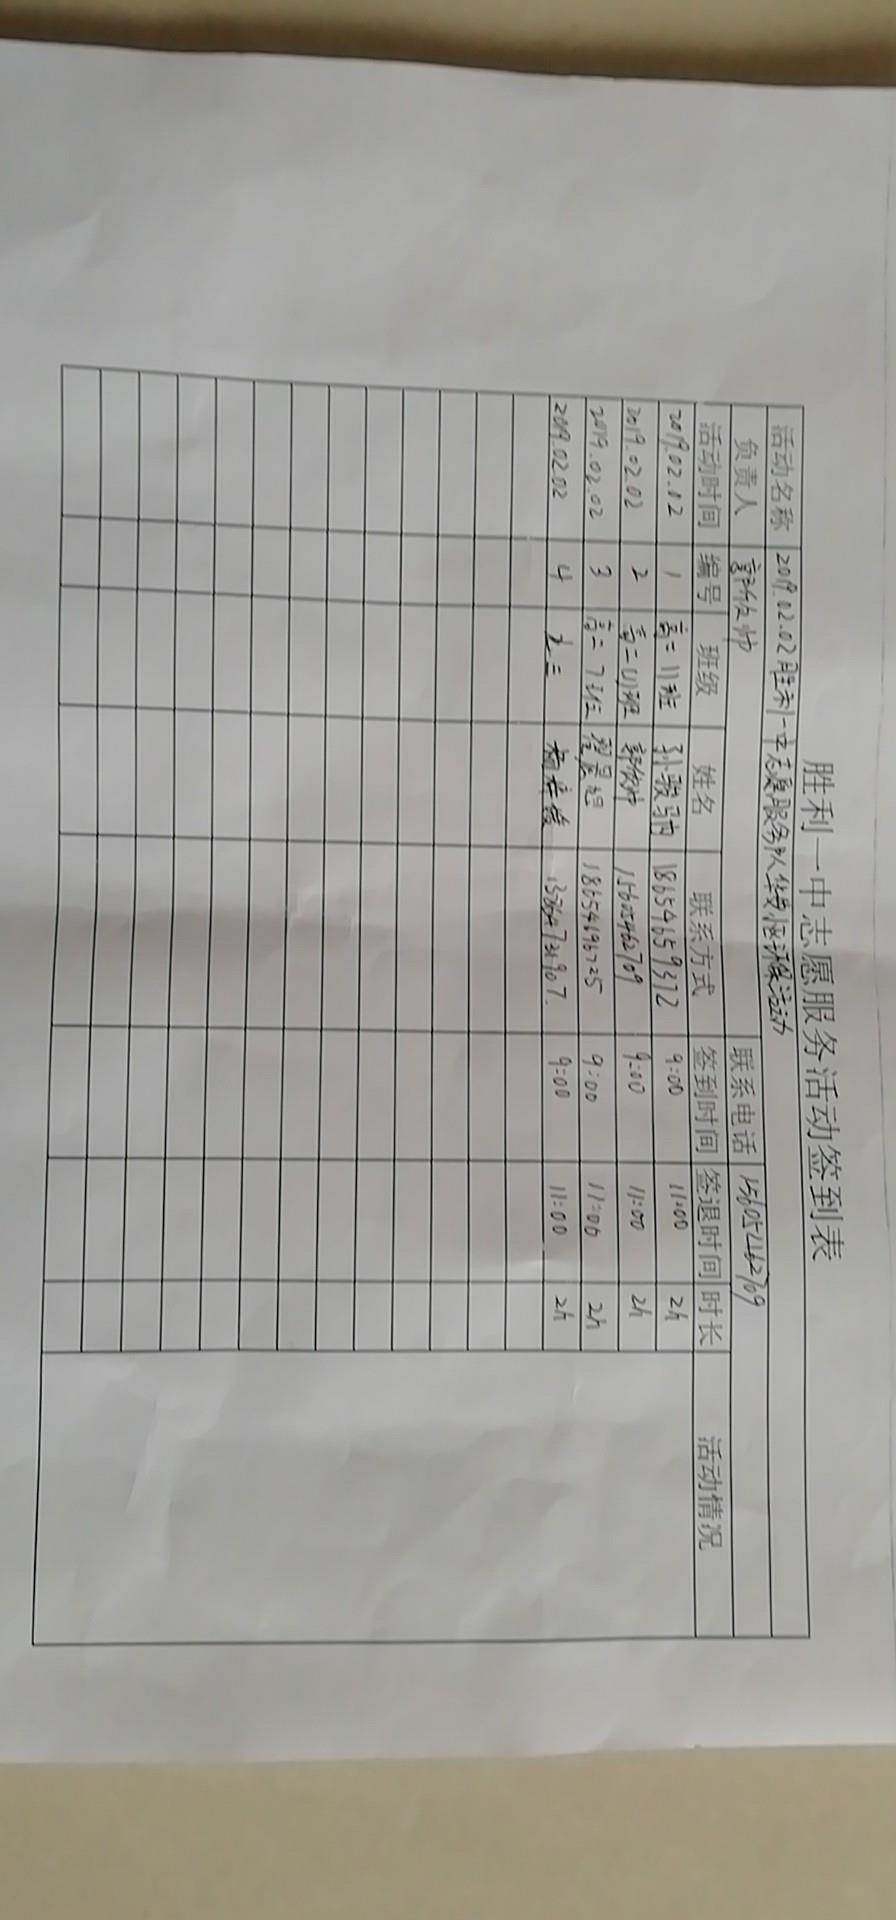 胜利一中志愿服务活动签到表
活动名称 2019.02.02胜利一中志愿服务队
负责人 联系电话 15605462709
活动时间 编号 班级 姓名 联系方式 签到时间 签退时间 时长 活动情况
2019.02.02 1 高二11班 18654659372 9:00 11:00 2h
2019.02.02 2 高二 班 15605462709 9:00 11:00 2h
2019.02.02 3 高二7班 18654696725 9:00 11:00 2h
2019.02.02 4 9:00 11:00 2h